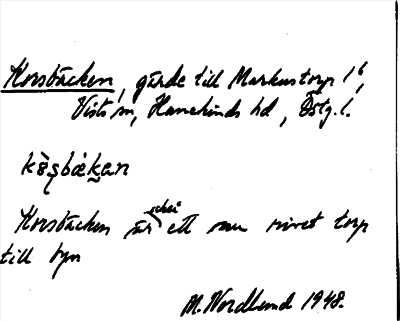 Korsbäcken, gärde till Markustorp 1⁶,
Vists sn, Hanekinds hd, Östg. l.
kòs̩bækan
Korsbäcken är också ett nu rivet torp
till byn
M. Nordlund 1948.